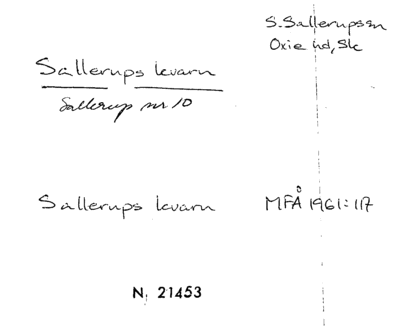 S. Sallerups sn
Oxie hd, Sk
Sallerups kvarn
Sallerup nr 10
Sallerups kvarn MFÅ 1961:117
N. 21453